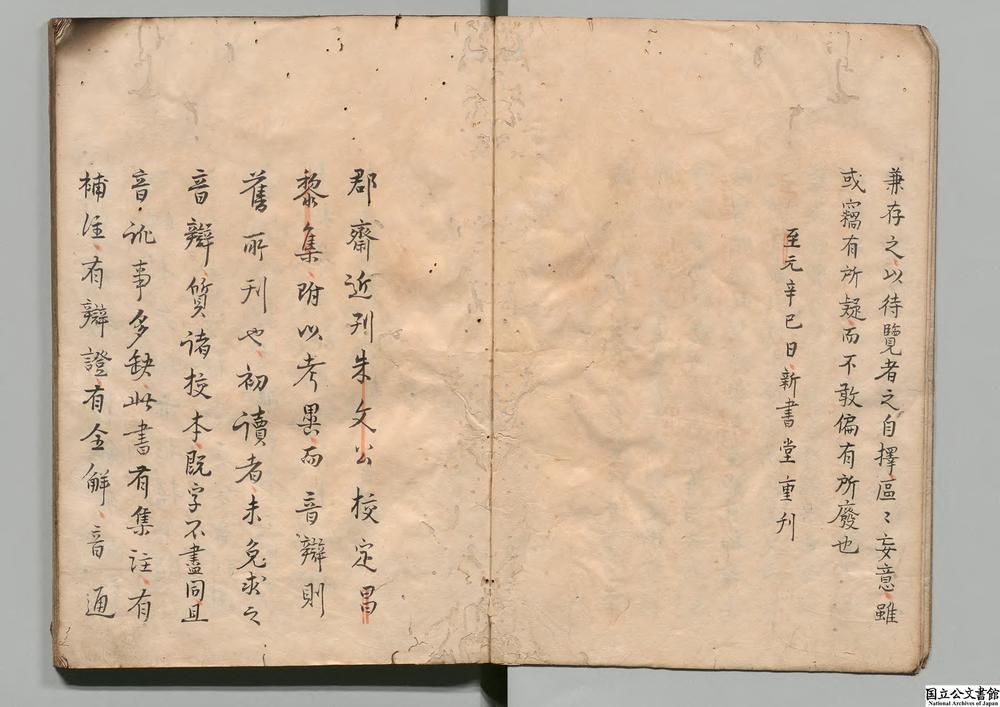 兼存之以待覽者之自擇區〻妄意雖
或竊有所疑而不敢偏有所廢也
至元辛巳日新書堂重刊
郡齋近刊朱文公校定昌
黎集附以考異而音辯則
舊所刊也初讀者未免求之
音辯質諸校本既字不盡同且
音訛事多缺此書有集註有
補注有辯證有全解音通
国立公文書館
National Archives of Japan